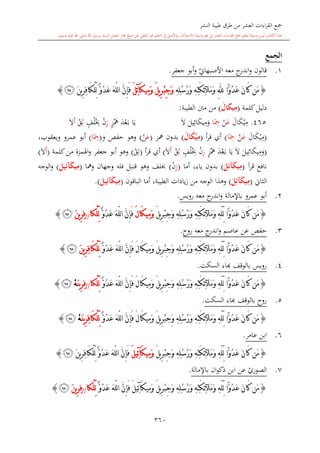 جمع القراءات العشر من طرق طيبة النشر
الجمع
١. قالون واندرج معه الأصبهانيّ وأبو جعفر.
﴿ مَن كَانَ عَدُوًّا لِّلَّهِ وَمَلَٰٓئِكَتِهِۦ وَرُسُلِهِۦ وَجِبْرِيلَ وَمِيكَـٰٓئِلَ فَإِنَّ ٱللَّهَ عَدُوٌّ لِّلْكَـٰفِرِينَ ٩٨ ﴾
دليل كلمة (مِيكَالَ) من متن الطيبة:
٤٦٥. مِيْكَالَ عَنْ حِمًا وَمِيكَائِيلَ لَا يَا بَعْدَ هَمْزٍ زِنْ بِخُلْفٍ ثِقْ أَلَا
(مِيْكَالَ عَنْ حِمًا) أي قرأ (مِيْكَالَ) بدون همز (عَنْ) وهو حفص و(حِمًا) أبو عمرو ويعقوب،
(وَمِيكَائِيلَ لَا يَا بَعْدَ هَمْزٍ زِنْ بِخُلْفٍ ثِقْ أَلَا) أي قرأ (ثِقْ) وهو أبو جعفر والهمزة من كلمة (أَلَا)
نافع قرأ (مِيكَـٰٓئِلَ) بدون ياء، أما (زِنْ) بخلف وهو قنبل فله وجهان وهما (مِيكَـٰٓئِلَ) والوجه
الثاني (مِيكَـٰٓئِيلَ) وهذا الوجه من زيادات الطيبة، أما الباقون (مِيكَـٰٓئِيلَ).
٢. أبو عمرو بالإمالة واندرج معه رويس.
﴿ مَن كَانَ عَدُوًّا لِّلَّهِ وَمَلَٰٓئِكَتِهِۦ وَرُسُلِهِۦ وَجِبْرِيلَ وَمِيكَالَ فَإِنَّ ٱللَّهَ عَدُوٌّ لِّلْكَـٰفِرِينَ ٩٨ ﴾
٣. حفص عن عاصم واندرج معه روح.
﴿ مَن كَانَ عَدُوًّا لِّلَّهِ وَمَلَٰٓئِكَتِهِۦ وَرُسُلِهِۦ وَجِبْرِيلَ وَمِيكَالَ فَإِنَّ ٱللَّهَ عَدُوٌّ لِّلْكَـٰفِرِينَ ٩٨ ﴾
٤. رويس بالوقف بهاء السكت.
﴿ مَن كَانَ عَدُوًّا لِّلَّهِ وَمَلَٰٓئِكَتِهِۦ وَرُسُلِهِۦ وَجِبْرِيلَ وَمِيكَالَ فَإِنَّ ٱللَّهَ عَدُوٌّ لِّلْكَـٰفِرِينَهْ ٩٨ ﴾
٥. روح بالوقف بهاء السكت.
﴿ مَن كَانَ عَدُوًّا لِّلَّهِ وَمَلَٰٓئِكَتِهِۦ وَرُسُلِهِۦ وَجِبْرِيلَ وَمِيكَالَ فَإِنَّ ٱللَّهَ عَدُوٌّ لِّلْكَـٰفِرِينَهْ ٩٨ ﴾
٦. ابن عامر.
﴿ مَن كَانَ عَدُوًّا لِّلَّهِ وَمَلَٰٓئِكَتِهِۦ وَرُسُلِهِۦ وَجِبْرِيلَ وَمِيكَـٰٓئِيلَ فَإِنَّ ٱللَّهَ عَدُوٌّ لِّلْكَـٰفِرِينَ ٩٨ ﴾
٧. الصوريّ عن ابن ذكوان بالإمالة.
﴿ مَن كَانَ عَدُوًّا لِّلَّهِ وَمَلَٰٓئِكَتِهِۦ وَرُسُلِهِۦ وَجِبْرِيلَ وَمِيكَـٰٓئِيلَ فَإِنَّ ٱللَّهَ عَدُوٌّ لِّلْكَـٰفِرِينَ ٩٨ ﴾
-٣٦٠-